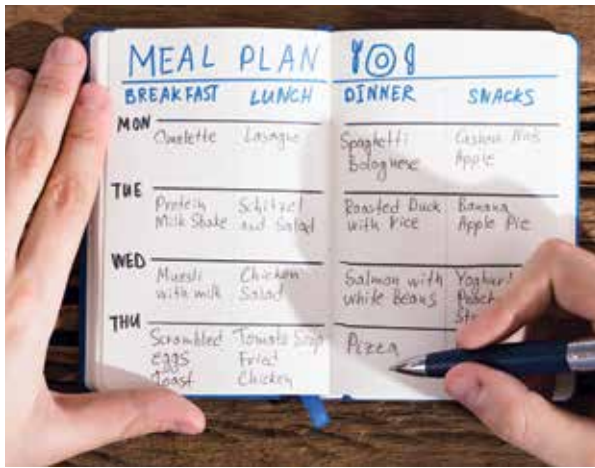 MEAL PLAN
BREAKFAST LUNCH DINNER SNACKS
MON
Omelette
Lasagne
Spaghetti
Bolognese
Cashew Nuts
Apple
TUE
Protein
Milk Shake
Schitzel
and Salad
Roasted Duck
with Rice
Banana
Apple Pie
WED
Muesli
with milk
Chicken
Salad
Salmon with
white Beans
Yoghurt
Peach
THU
Scrambled
Eggs
Toast
Tomato Soup
Fried
Chicken
Pizza